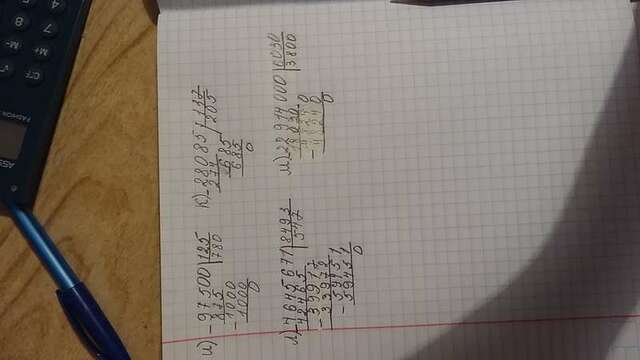 и) - 97500 | 125
875 | 780
- 1000
1000
0
к) - 28085 | 137
274 | 205
- 685
685
0
л) - 4645671 | 8493
42465 | 547
- 39917
33972
- 59451
59451
0
м) - 22914000 | 6030
18090 | 3800
- 48240
48240
0
FASHION
CT M+ M-
7 8
4